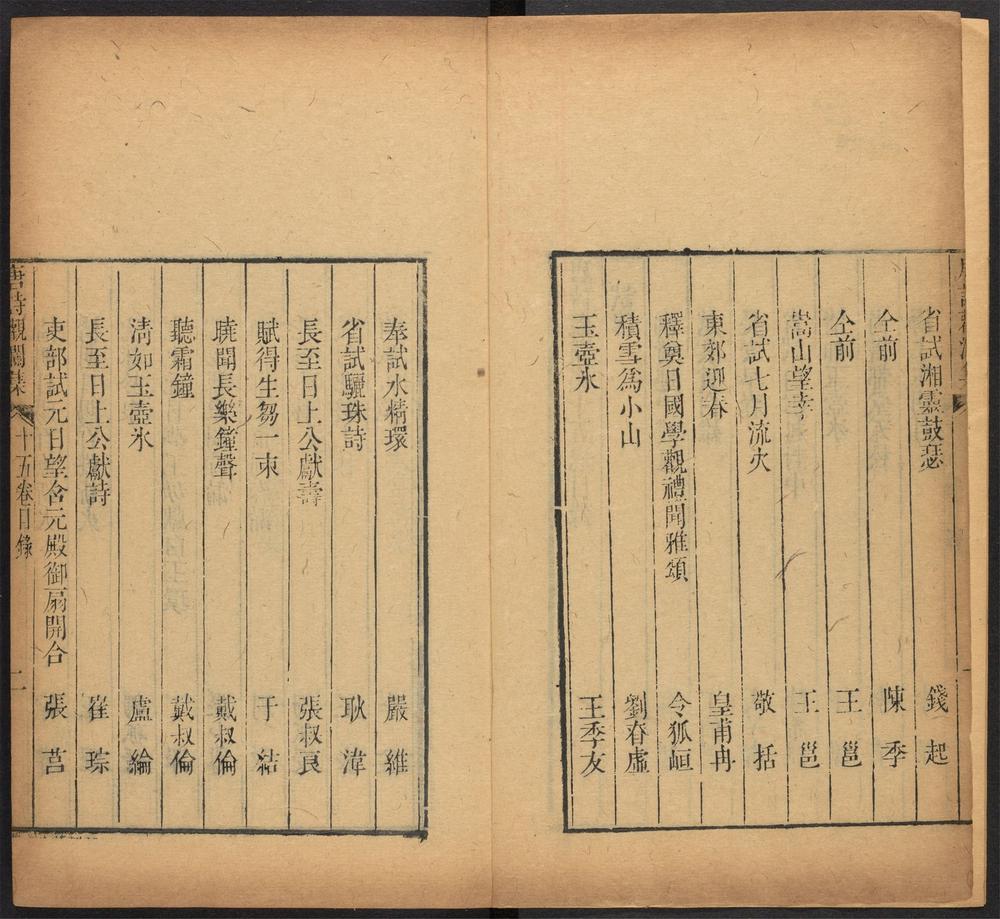 省試湘靈鼓瑟 錢起
仝前 陳季
仝前 王邕
嵩山望幸 王邕
省試七月流火 敬括
東郊迎春 皇甫冉
釋奠日國學觀禮聞雅頌 令狐峘
積雪爲小山 劉眘虛
玉壺氷 王季友
奉試水精環 嚴維
省試驪珠詩 耿湋
長至日上公獻壽 張叔良
賦得生芻一束 于結
曉聞長樂鐘聲 戴叔倫
聽霜鐘 戴叔倫
清如玉壺氷 盧綸
長至日上公獻詩 崔琮
吏部試元日望含元殿御扇開合 張莒
唐詩觀瀾集 十五卷目錄 二